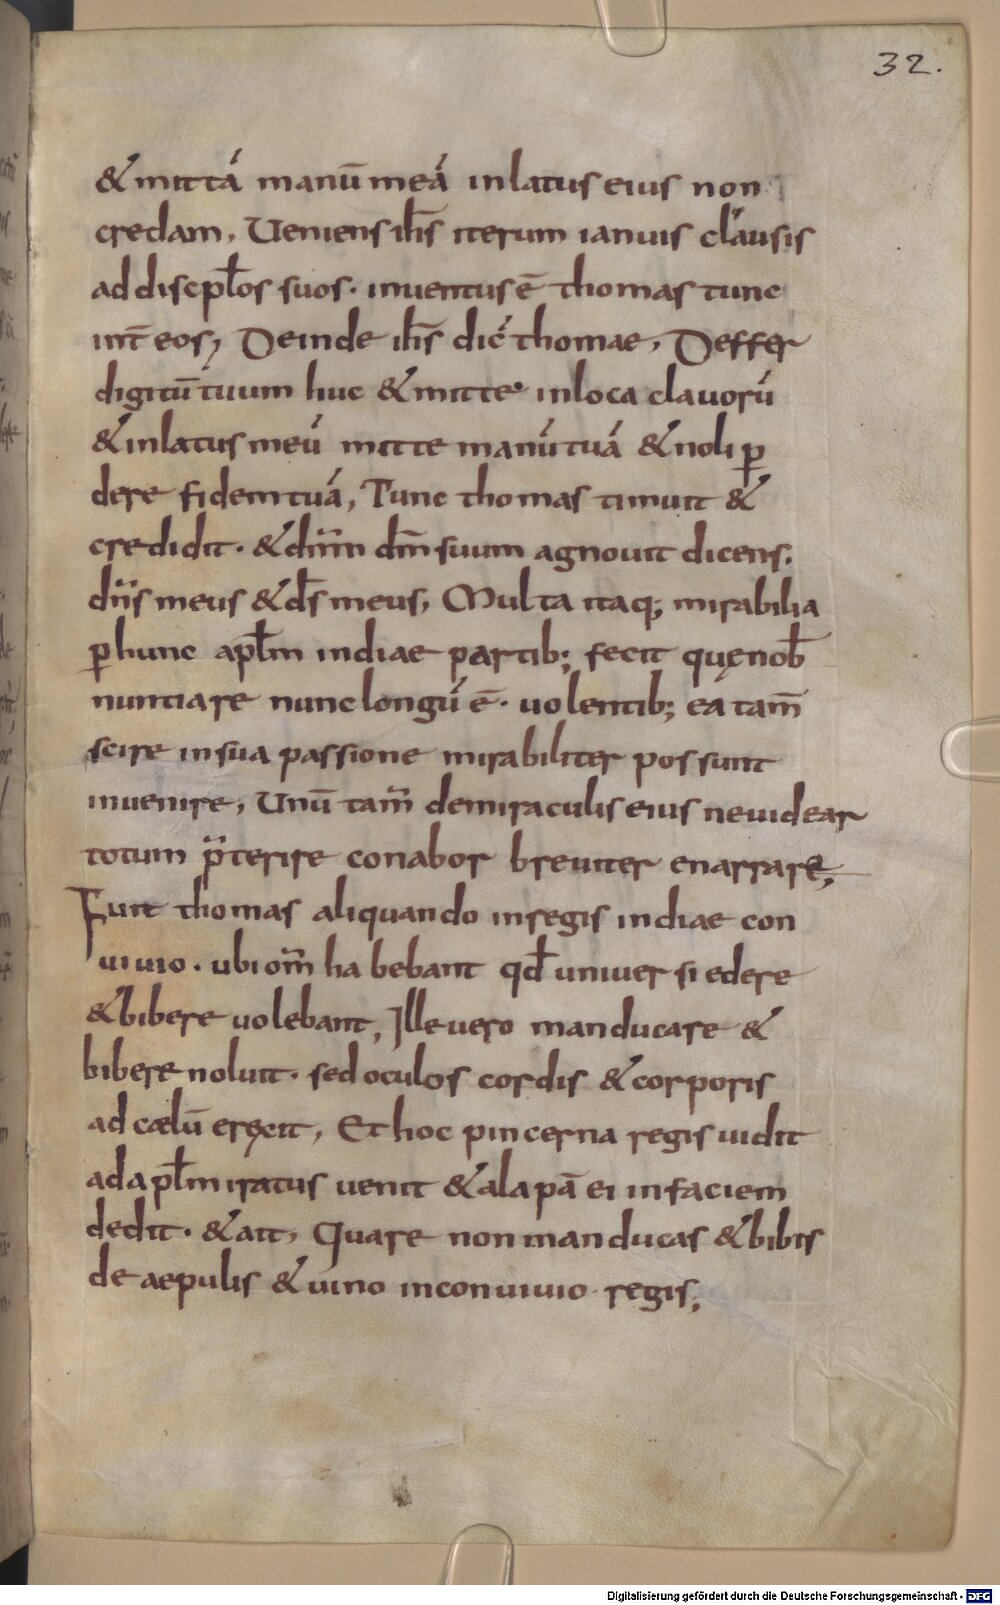 32.
& mittā manū meā in latus eius non
credam, Veniens ih̄s iterum ianuis clausis
ad discipl̄os suos· inuentus ē thomas tunc
int̄ eos; Deinde ih̄s dic̄ thomae, Deffer
digitū tuum huc & mitte in loca clauorū
& in latus meū mitte manū tuā & noli ꝑ
dere fidem tuā, Tunc thomas timuit &
credidit· & dn̄m dm̄ suum agnouit dicens.
dn̄s meus & ds̄ meus, Multa itaq; mirabilia
ꝑ hunc apl̄m indiae partib; fecit quę nob̄
nuntiare nunc longū ē· uolentib; ea tam̄
scire in sua passione mirabiliter possunt
inuenire, Unū tam̄ de miraculis eius ne uidear
totum p̄terire conabor breuiter enarrare;
Fuit thomas aliquando in regis indiae con
uiuio· ubi om̄ habebant qd̄ uniuersi edere
& bibere uolebant, Ille uero manducare &
bibere noluit· sed oculos cordis & corporis
ad cælū eręcit, Et hoc pincerna regis uidit
ad apl̄m iratus uenit & alapā ei in faciem
dedit· & ait, Quare non manducas & bibis
de aepulis & uino in conuiuio regis;
Digitalisierung gefördert durch die Deutsche Forschungsgemeinschaft - DFG